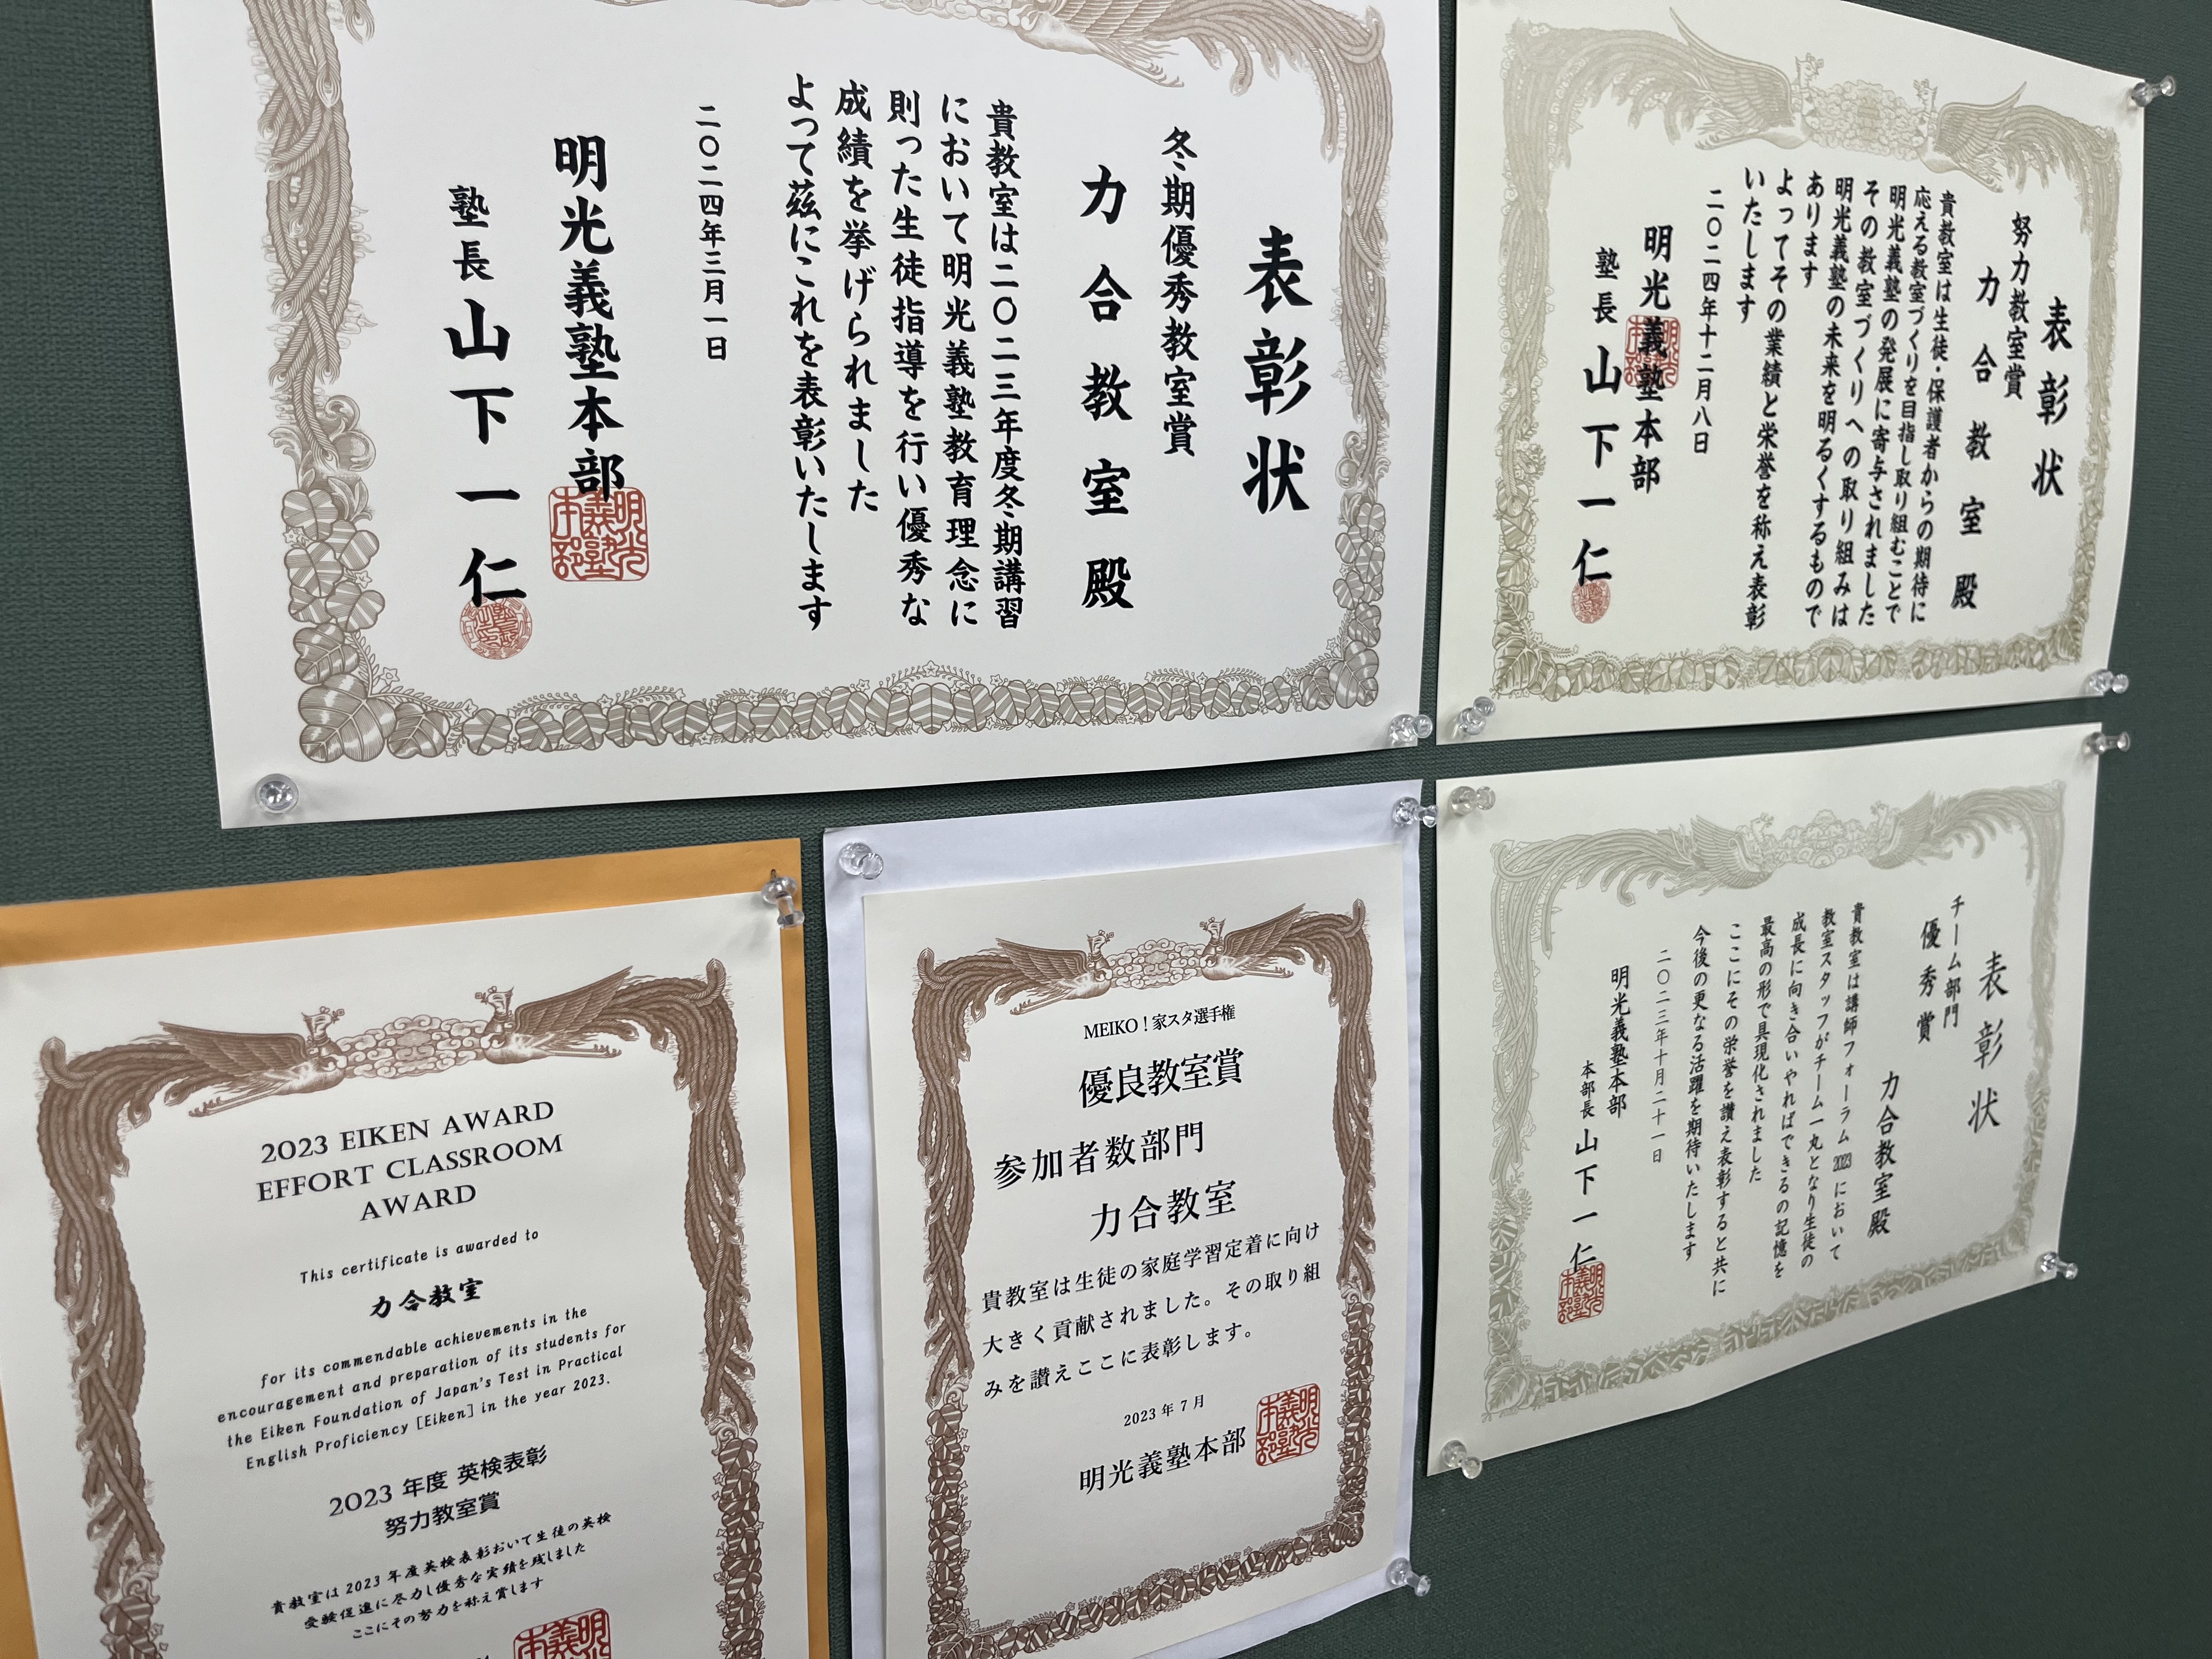 表彰状
冬期優秀教室賞
力合教室殿
貴教室は二〇二三年度冬期講習
において明光義塾教育理念に
則った生徒指導を行い優秀な
成績を挙げられました
よって茲にこれを表彰いたします
二〇二四年三月一日
明光義塾本部
塾長 山下一仁
明光
義塾
本部
表彰状
努力教室賞
力合教室殿
貴教室は生徒・保護者からの期待に
応える教室づくりを目指し取り組むことで
明光義塾の発展に寄与されました
その教室づくりへの取り組みは
明光義塾の未来を明るくするもので
あります
よってその業績と栄誉を称え表彰
いたします
二〇二四年十二月八日
明光義塾本部
塾長 山下一仁
2023 EIKEN AWARD
EFFORT CLASSROOM
AWARD
This certificate is awarded to
力合教室
for its commendable achievements in the
encouragement and preparation of its students for
the Eiken Foundation of Japan's Test in Practical
English Proficiency [Eiken] in the year 2023.
2023 年度 英検表彰
努力教室賞
貴教室は 2023 年度英検表彰おいて生徒の英検
受験促進に尽力し優秀な実績を残しました
ここにその努力を称え賞します
MEIKO！家スタ選手権
優良教室賞
参加者数部門
力合教室
貴教室は生徒の家庭学習定着に向け
大きく貢献されました。その取り組
みを讃えここに表彰します。
2023 年 7 月
明光義塾本部
明光
義塾
本部
表彰状
チーム部門
優秀賞
力合教室殿
貴教室は講師フォーラム 2023 において
教室スタッフがチーム一丸となり生徒の
成長に向き合いやればできるの記憶を
最高の形で具現化されました
ここにその栄誉を讃え表彰すると共に
今後の更なる活躍を期待いたします
二〇二三年十月二十一日
明光義塾本部
本部長 山下一仁
明光
義塾
本部